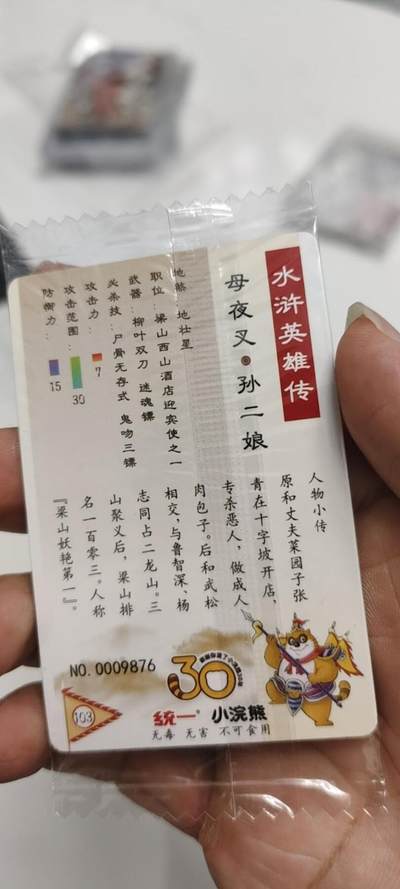 水浒英雄传
母夜叉·孙二娘
地煞：地壮星
职位：梁山西山酒店迎宾使之一
武器：柳叶双刀 迷魂镖
必杀技：尸骨无存式 鬼吻三镖
攻击力：7
攻击范围：30
防御力：15
人物小传
原和丈夫菜园子张
青在十字坡开店，
专杀恶人，做成人
肉包子。后和武松
相交，与鲁智深、杨
志同占二龙山。三
山聚义后，梁山排
名一百零三。人称
『梁山妖艳第一』。
NO.0009876
30
103
统一® 小浣熊
无毒 无害 不可食用